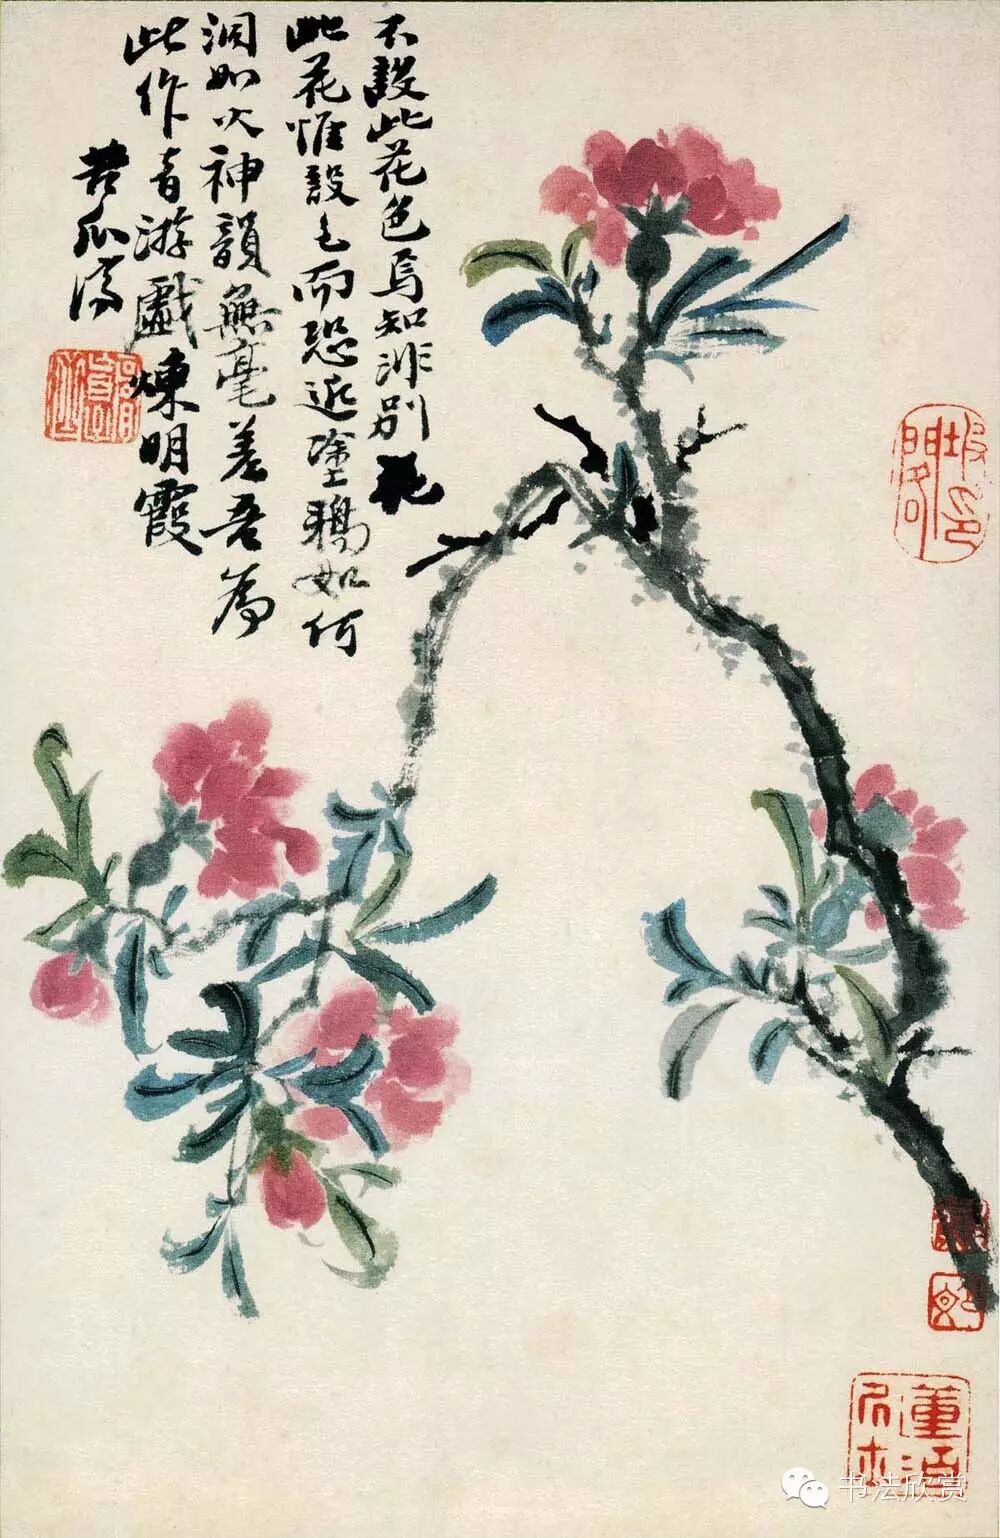 不設此花色焉知非別花
此花惟設色而恐近塗鴉如何
洞如火神韻無毫差吾為
此作音游戲煉明霞
苦瓜濟
书法欣赏